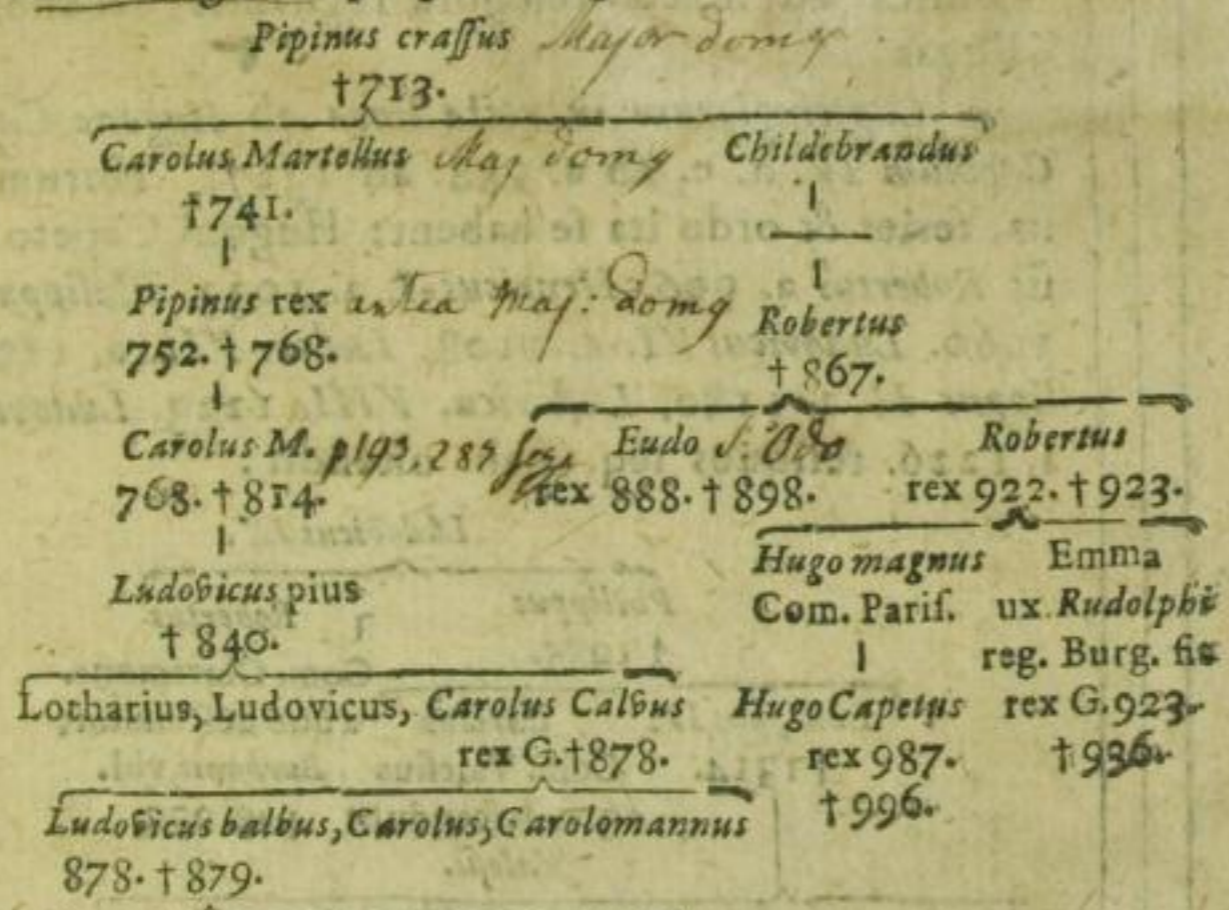 Pipinus crassus Major domq
†713.
Carolus Martellus Maj domq Childebrandus
†741.
Pipinus rex antea Maj: domq
752. † 768.
Robertus
† 867.
Carolus M. p193.287
768. † 814.
Eudo s. Odo
rex 888. † 898.
Robertus
rex 922. † 923.
Ludovicus pius
† 840.
Hugo magnus
Com. Paris.
Emma
ux. Rudolphi
reg. Burg. fit
rex G. 923.
† 936.
Lotharius, Ludovicus, Carolus Calvus
rex G. †878.
Hugo Capetus
rex 987.
† 996.
Ludovicus balbus, Carolus, Carolomannus
878. † 879.